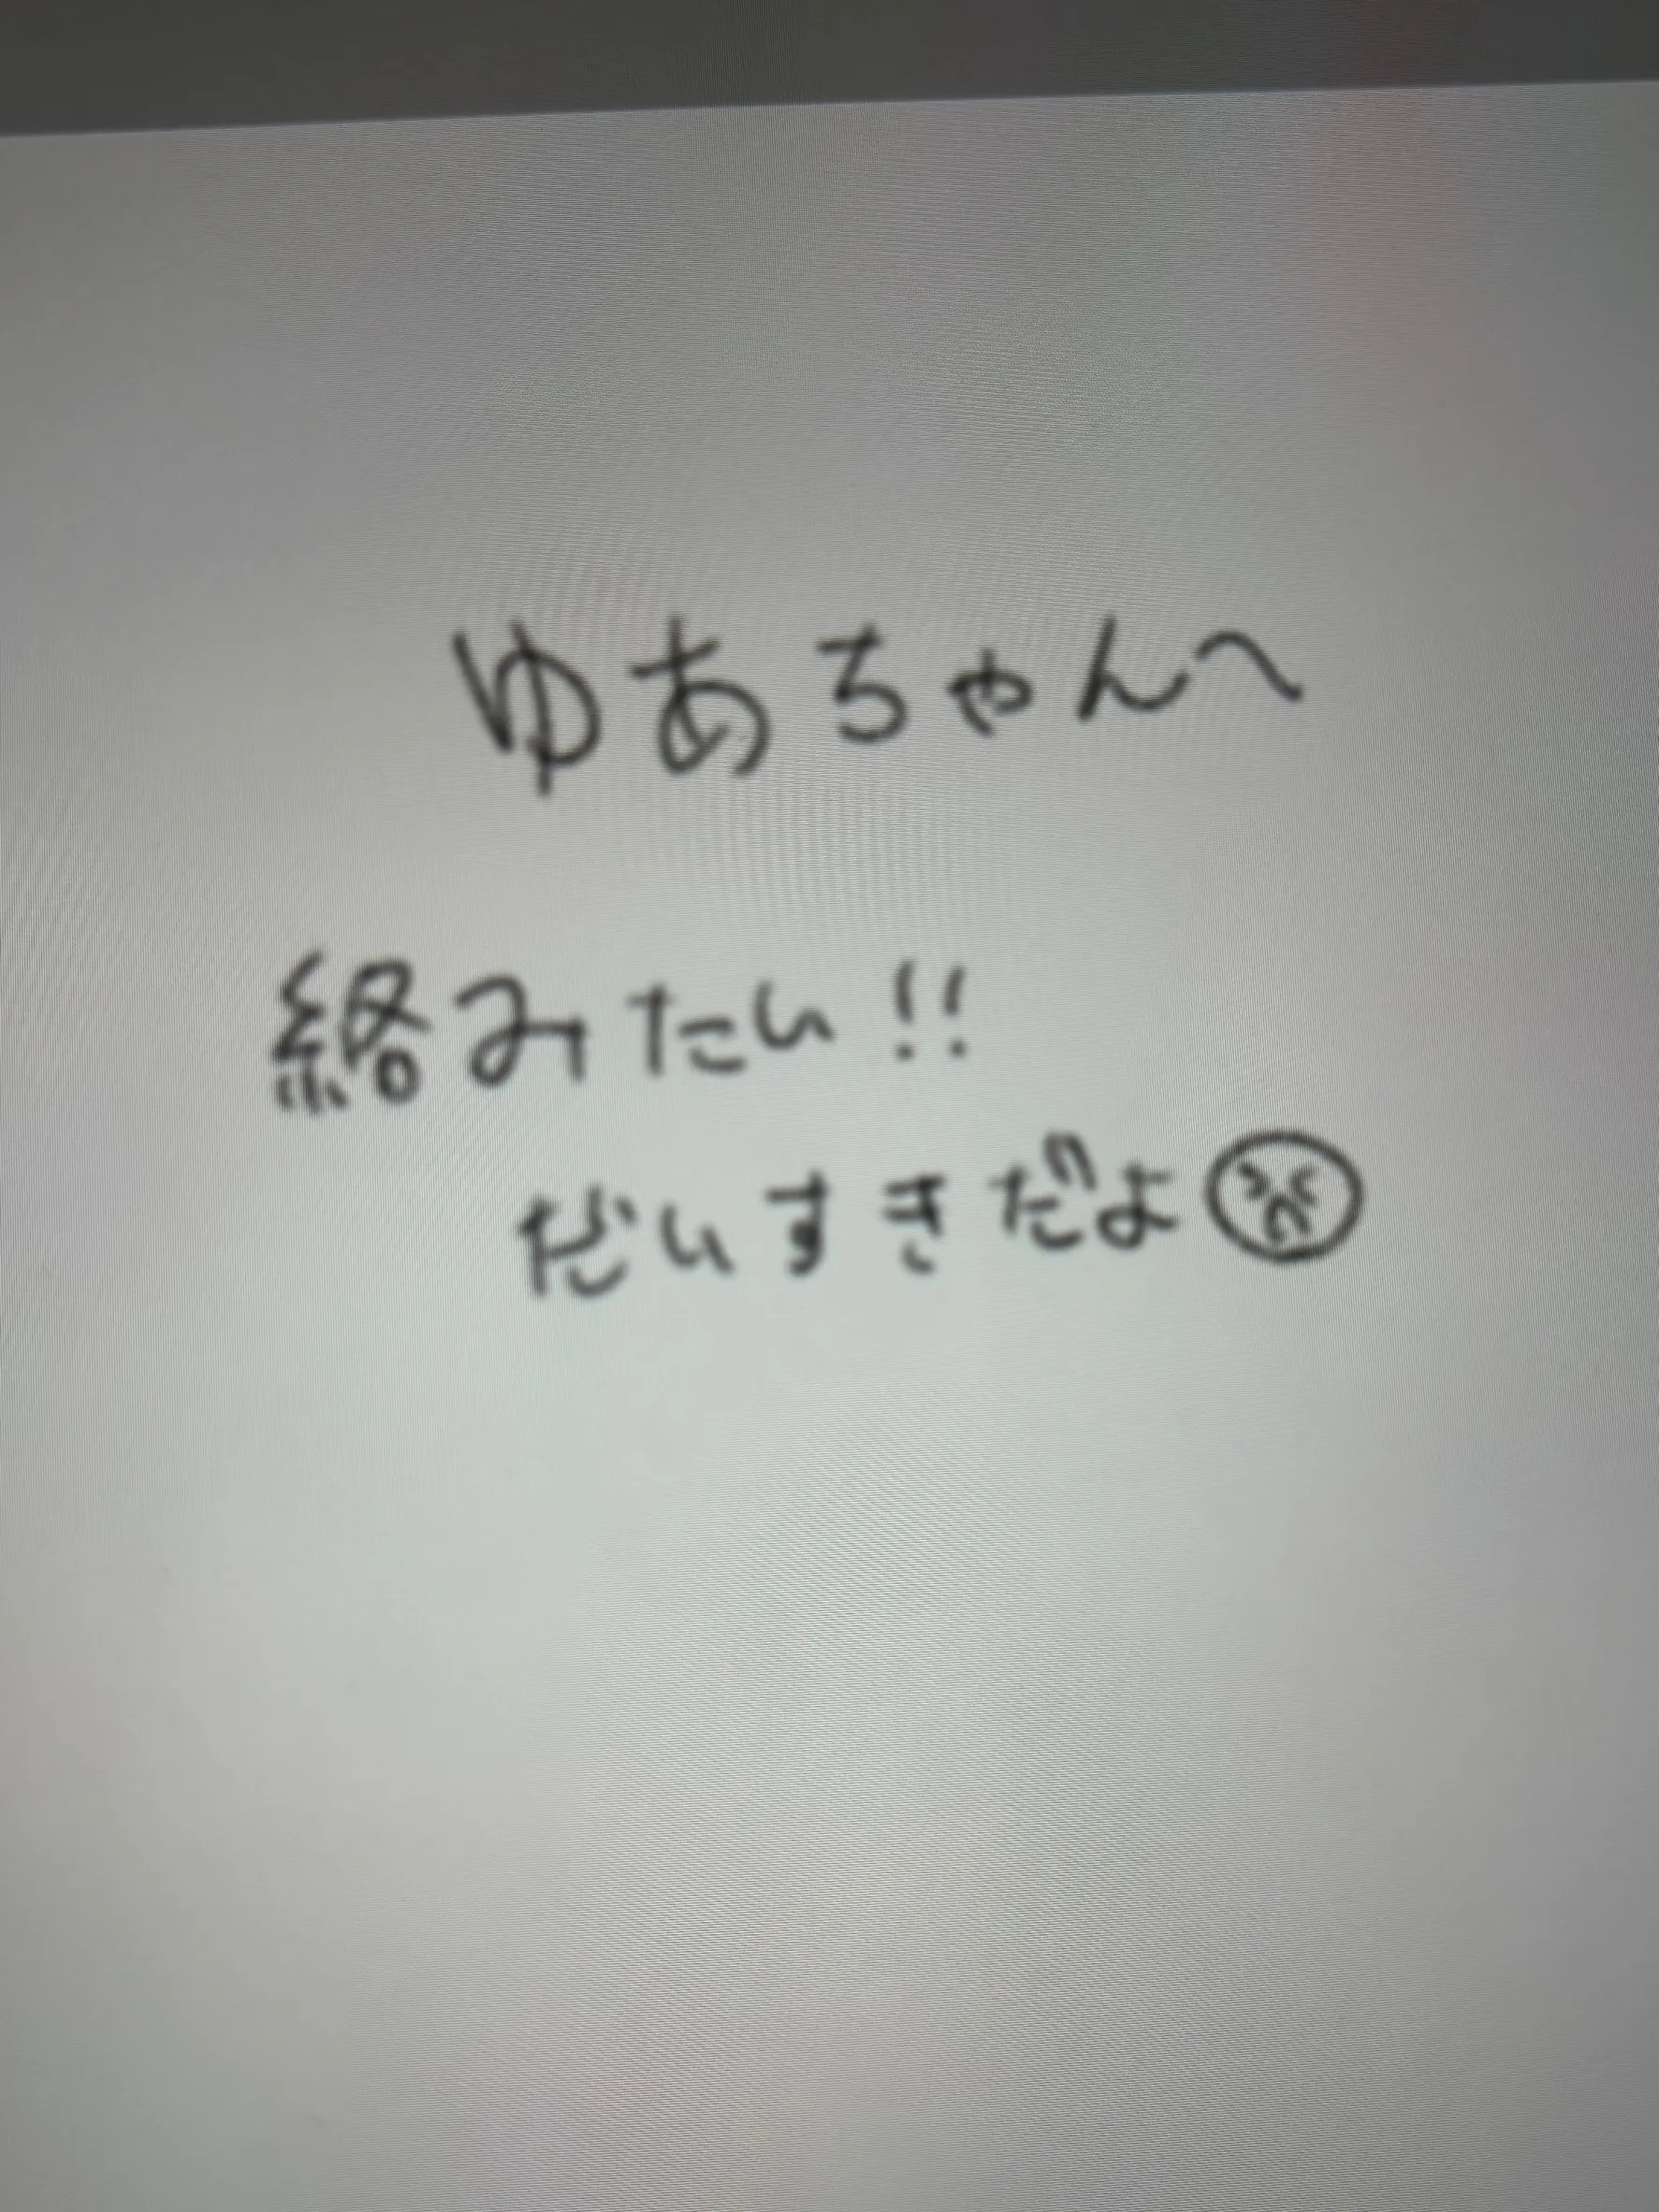 ゆあちゃんへ
絡みたい!!
だいすきだよ